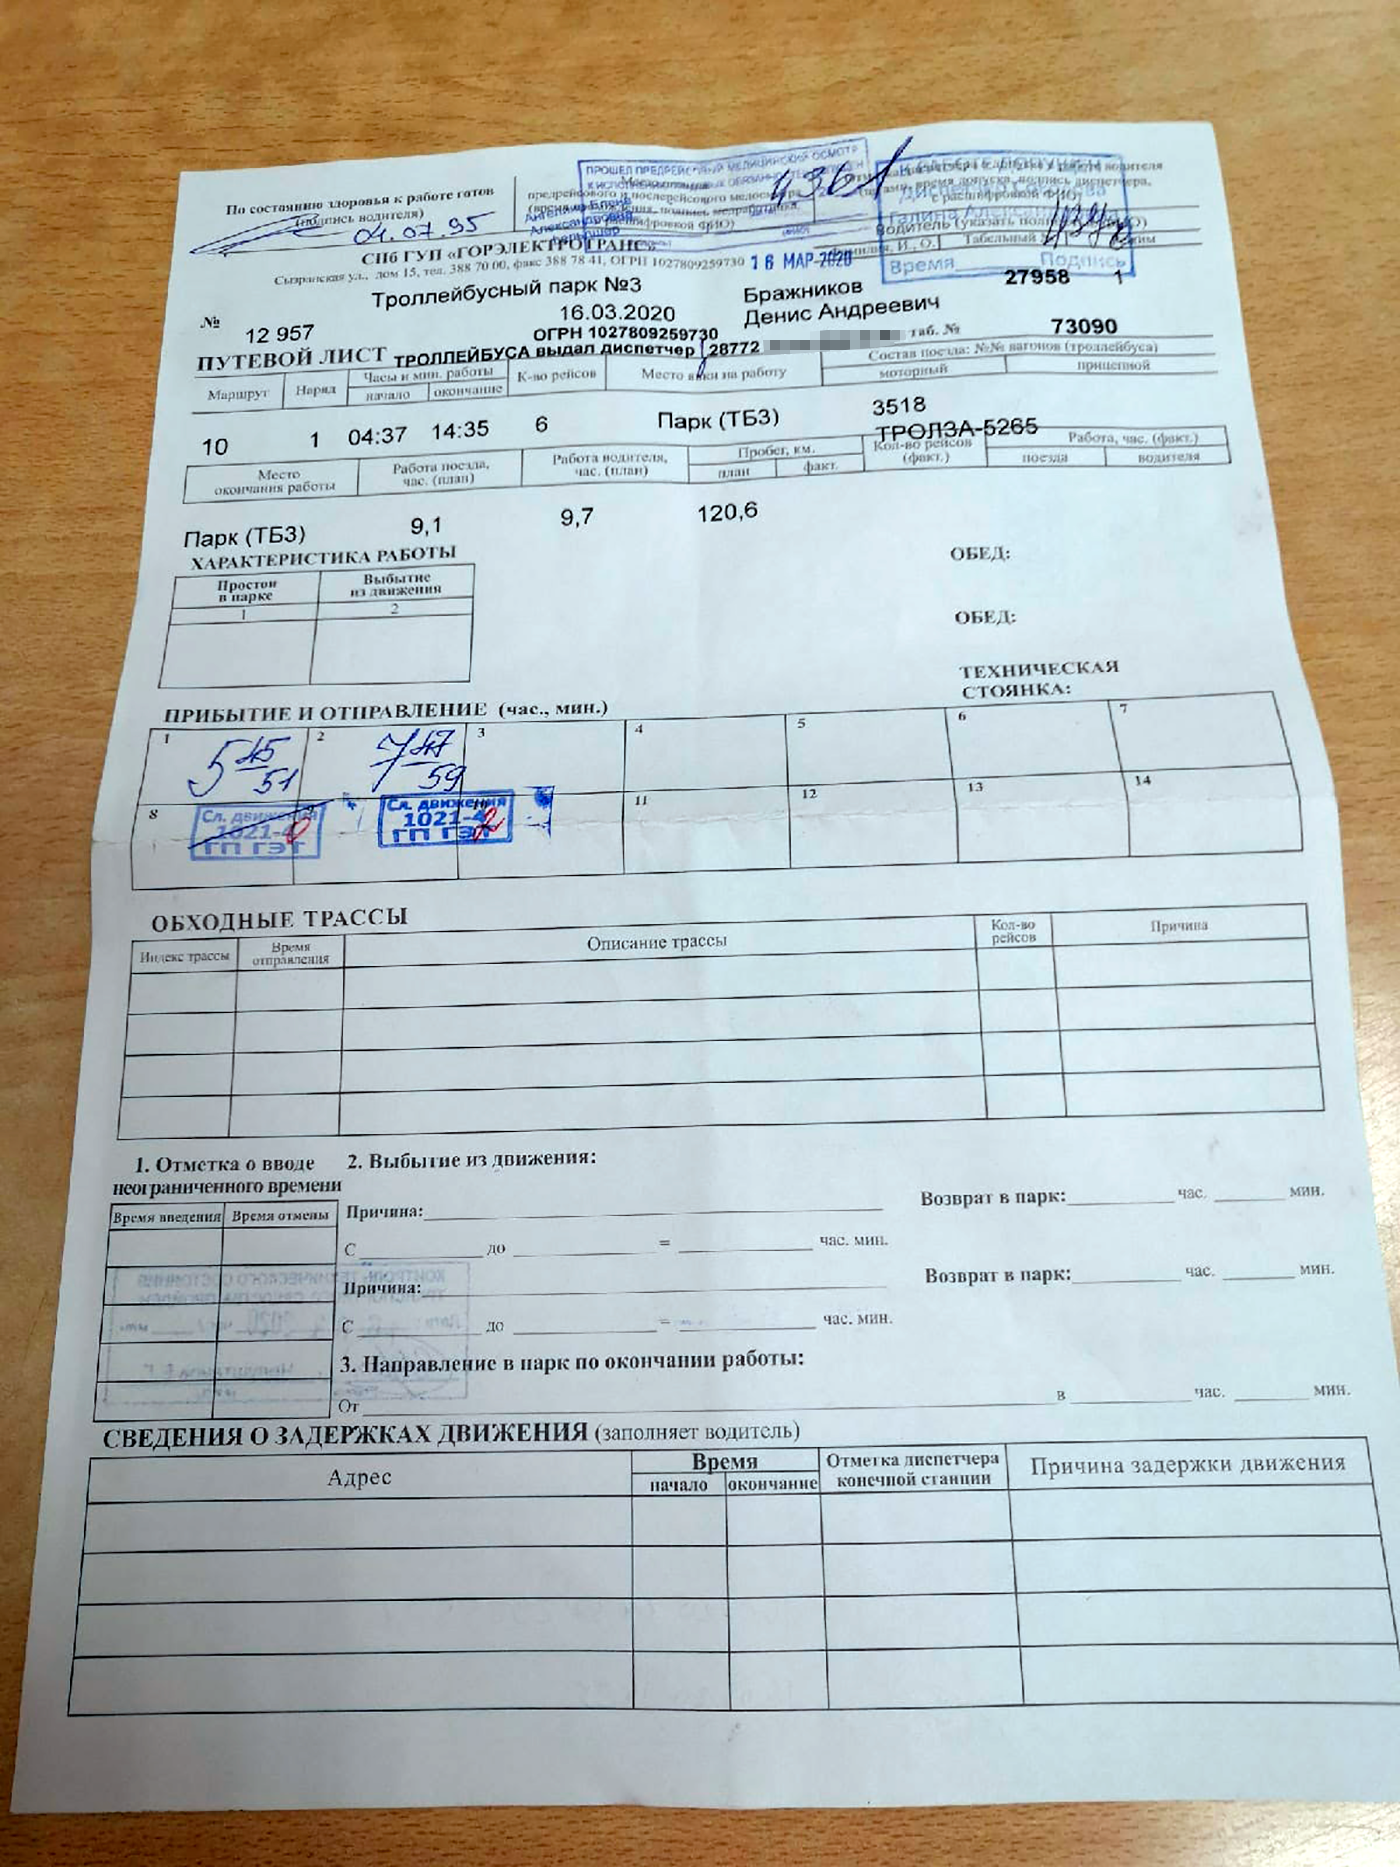 По состоянию здоровья к работе готов
(подпись водителя)
04.07.95
ПРОШЕЛ ПРЕДРЕЙСОВЫЙ МЕДИЦИНСКИЙ ОСМОТР
К ИСПОЛНЕНИЮ
предрейсового и послерейсового медосмотра
Александровна
4361
Диспетчер
Галина
Водитель
Фамилия, И., О.
Табельный
Время Подпись
СПб ГУП «ГОРЭЛЕКТРОТРАНС»
Сызранская ул., дом 15, тел. 388 70 00, факс 388 78 41, ОГРН 1027809259730
16 МАР 2020
Троллейбусный парк №3
Бражников
27958 1
№ 12 957
16.03.2020
Денис Андреевич
ОГРН 1027809259730
таб. № 73090
ПУТЕВОЙ ЛИСТ ТРОЛЛЕЙБУСА выдал диспетчер 28772
Состав поезда: №№ вагонов (троллейбуса)
Маршрут
Наряд
Часы и мин. работы
начало
окончание
К-во рейсов
Место явки на работу
моторный
прицепной
10 1 04:37 14:35 6 Парк (ТБ3) 3518
ТРОЛЗА-5265
Место
окончания работы
Работа поезда,
час. (план)
Работа водителя,
час. (план)
Пробег, км.
план
факт.
Кол-во рейсов
(факт.)
Работа, час. (факт.)
поезда
водителя
Парк (ТБ3) 9,1 9,7 120,6
ХАРАКТЕРИСТИКА РАБОТЫ
Простои
в парке
Выбытие
из движения
1 2
ОБЕД:
ОБЕД:
ТЕХНИЧЕСКАЯ
СТОЯНКА:
ПРИБЫТИЕ И ОТПРАВЛЕНИЕ (час., мин.)
1 2 3 4 5 6 7
5 45
51
7 47
59
8 11 12 13 14
Сл. движения
1021-4
ГП ГЭТ
Сл. движения
1021-4
ГП ГЭТ
ОБХОДНЫЕ ТРАССЫ
Индекс трассы
Время
отправления
Описание трассы
Кол-во
рейсов
Причина
1. Отметка о вводе
неограниченного времени
Время введения
Время отмены
2. Выбытие из движения:
Причина:
Возврат в парк: час. мин.
С до = час. мин.
Причина:
Возврат в парк: час. мин.
С до = час. мин.
3. Направление в парк по окончании работы:
От в час. мин.
СВЕДЕНИЯ О ЗАДЕРЖКАХ ДВИЖЕНИЯ (заполняет водитель)
Адрес
Время
начало
окончание
Отметка диспетчера
конечной станции
Причина задержки движения